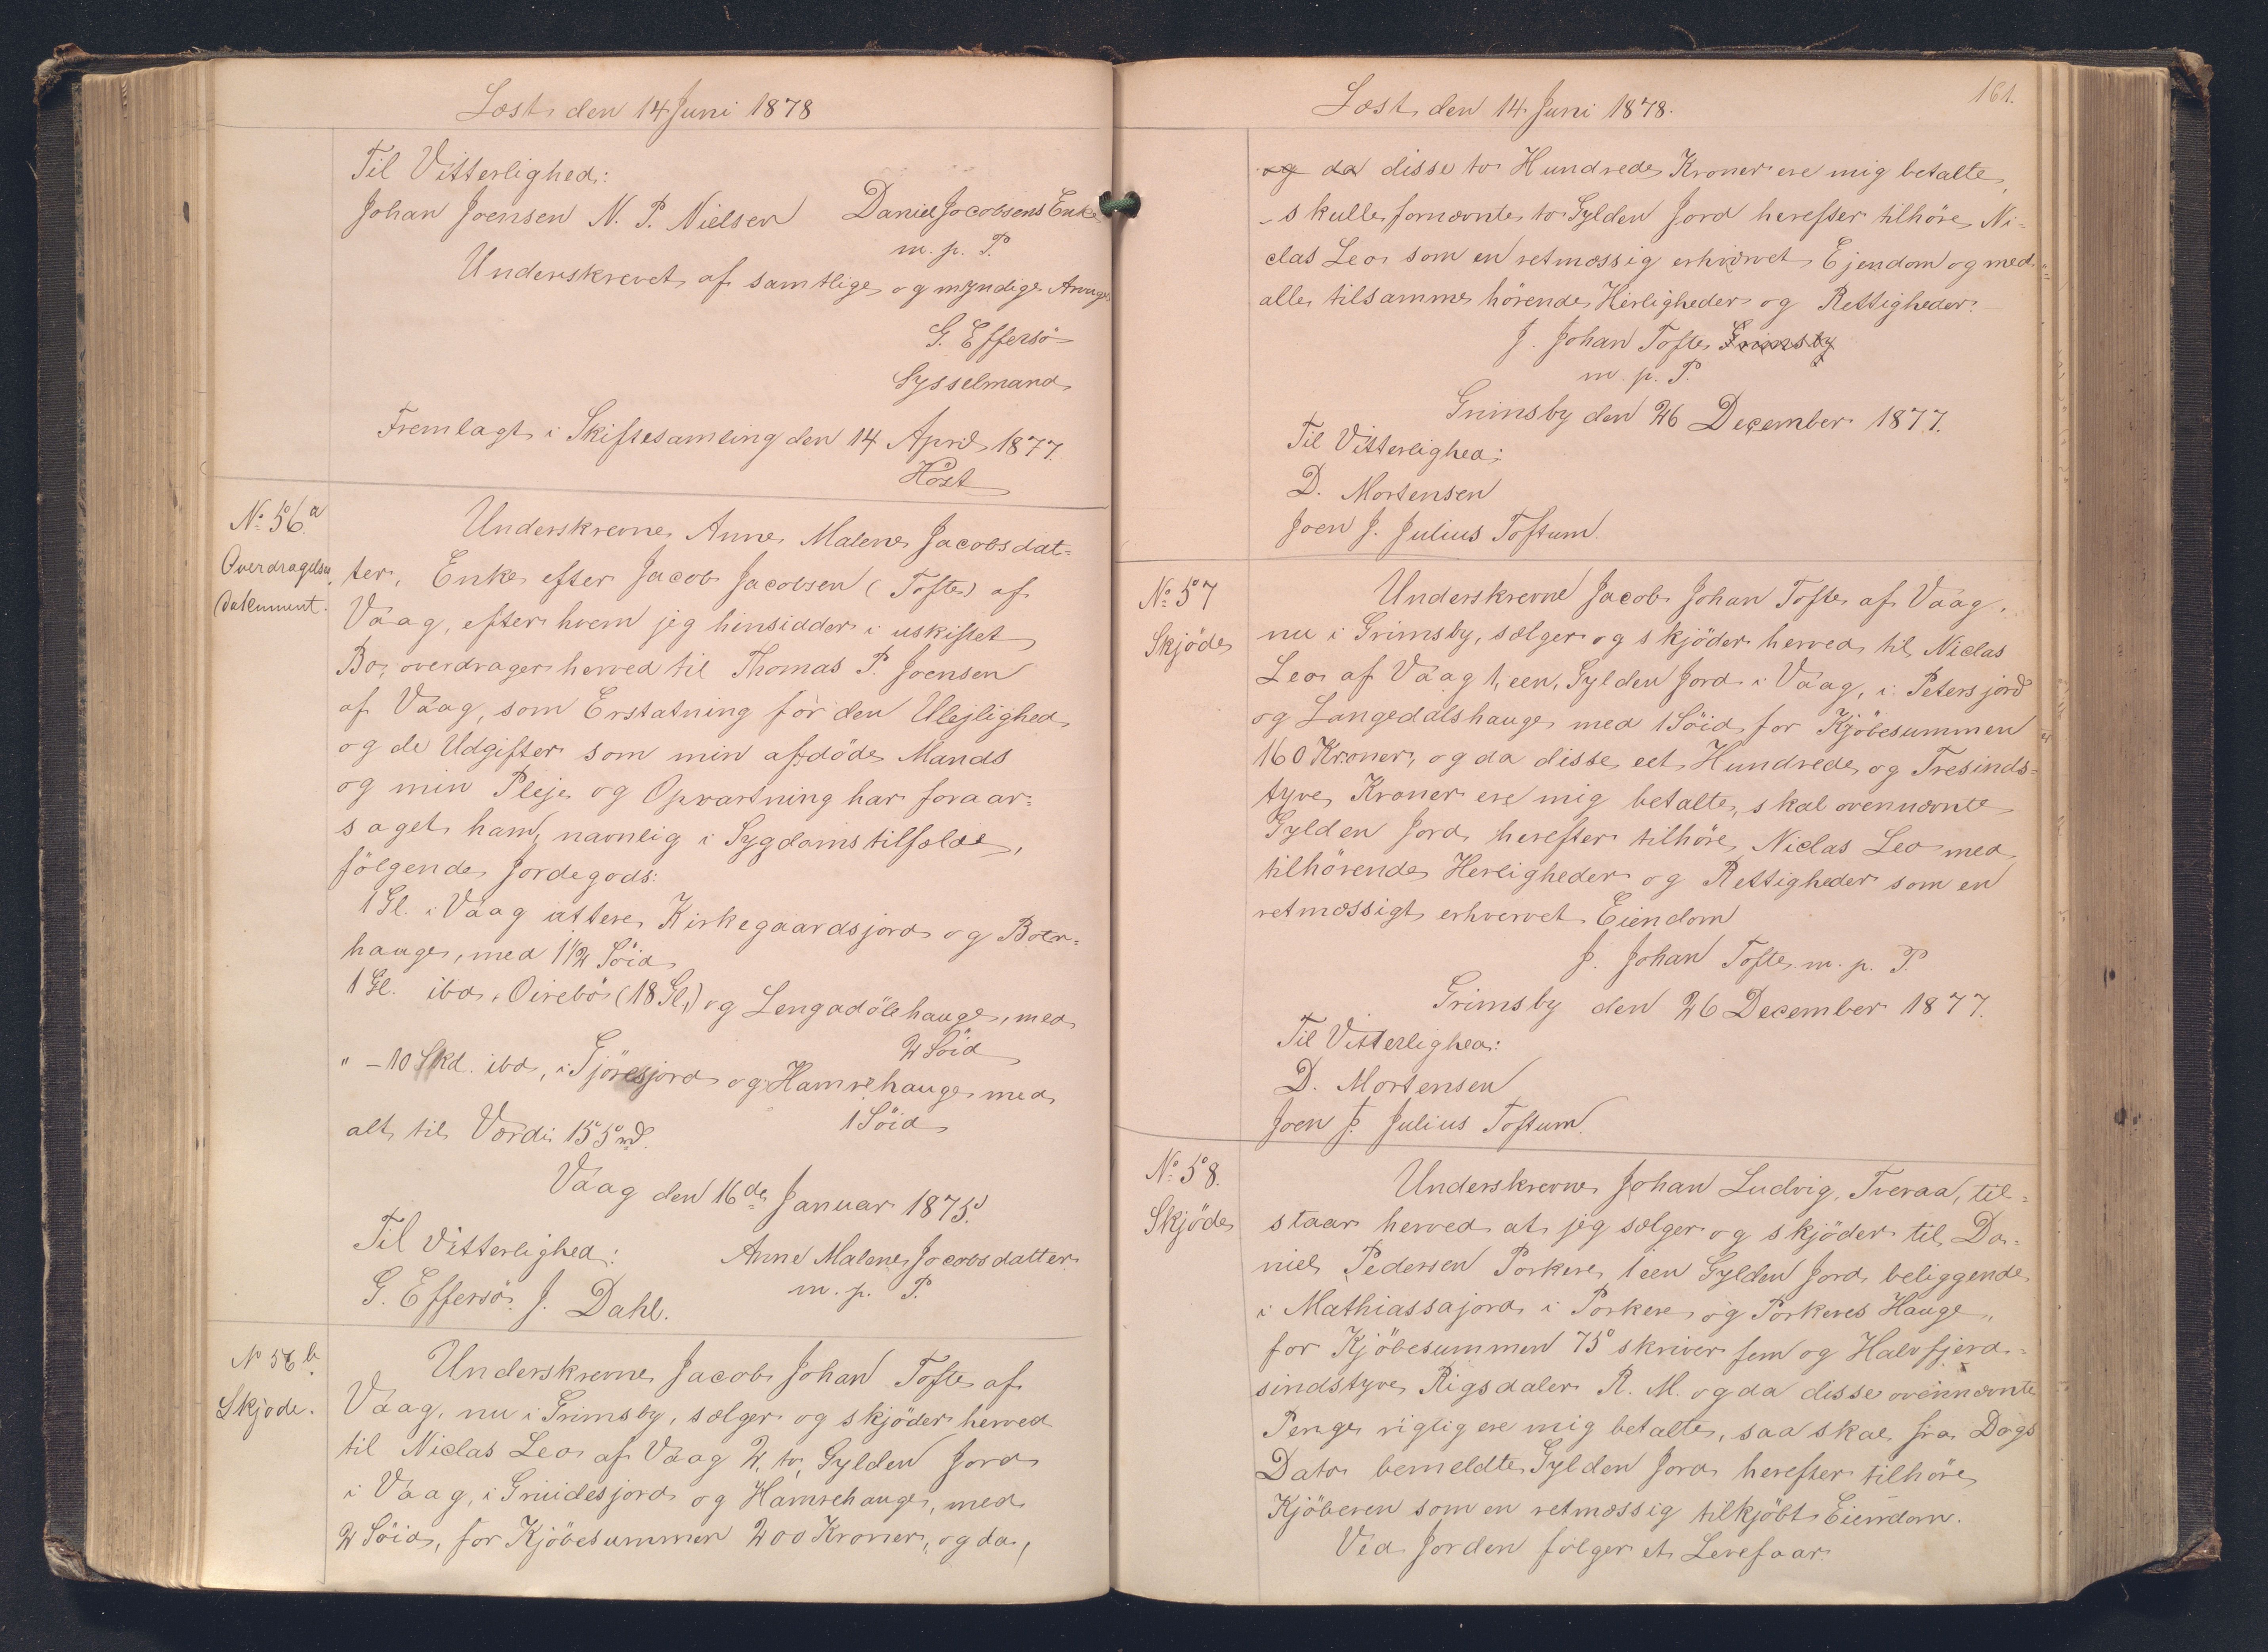 Læst den 14 Juni 1878
Til Vitterlighed:
Johan Joensen N. P. Nielsen Daniel Jacobsens Enke
m. p. P.
Underskrevet af samtlige og myndige Arvinger
G. Effersö
Sysselmand
Fremlagt i Skiftesamling den 14 April 1877.
Höst
No 56 a
Overdragelses
dokument.
Underskrevne Anne Malene Jacobsdat=
ter, Enke efter Jacob Jacobsen (Tofte) af
Vaag, efter hvem jeg hensidder i uskiftet
Bo, overdrager herved til Thomas P. Joensen
af Vaag, som Erstatning for den Ulejlighed
og de Udgifter som min afdöde Mands
og min Pleje og Opvartning har foraar=
saget ham, navnlig i Sygdomstilfælde,
fölgende Jordegods:
1 Gl. i Vaag i attere Kirkegaardsjord og Botn=
hauge, med 1 1/2 Söid
1 Gl. ibd. i Oirebö (18 Gl.) og Lengadölehauge, med
2 Söid
" – 10 Skd. ibd., i Tjöresjord og Hamrehauge med
1 Söid
alt til Værdi 155 rd.
Vaag den 16de Januar 1875.
Til Vitterlighed: Anne Malene Jacobsdatter
G. Effersö. J. Dahl. m. p. P.
No 56 b.
Skjøde.
Underskrevne Jacob Johan Tofte af
Vaag, nu i Grimsby, sælger og skjöder herved
til Niclas Leo af Vaag 2, to, Gylden Jord
i Vaag, i Gruidesjord og Hamrehauge, med
2 Söid, for Kjöbesummen 200 Kroner, og da,
161.
Læst den 14 Juni 1878.
og da disse to Hundrede Kroner ere mig betalte,
skulle fornævnte to Gylden Jord herefter tilhöre Ni=
clas Leo som en retmæssig erhvervet Ejendom og med
alle tilsamme hörende Herligheder og Rettigheder.
J. Johan Tofte Grimsby
m. p. P.
Grimsby den 26 December 1877.
Til Vitterlighed:
D. Mortensen
Joen J. Julius Toftum.
No 57
Skjöde
Underskrevne Jacob Johan Tofte af Vaag,
nu i Grimsby, sælger og skjöder herved til Niclas
Leo af Vaag 1, een, Gylden Jord i Vaag, i Petersjord
og Langedalshauge med 1 Söid for Kjöbesummen
160 Kroner, og da disse eet Hundrede og Tresinds=
tyve Kroner ere mig betalte, skal ovennævnte
Gylden Jord herefter tilhöre Niclas Leo med
tilhörende Herligheder og Rettigheder som en
retmæssigt erhvervet Eiendom
J. Johan Tofte m. p. P.
Grimsby den 26 December 1877.
Til Vitterlighed:
D. Mortensen
Joen J. Julius Toftum.
No 58.
Skjöde
Underskrevne Johan Ludvig, Tveraa, til=
staar herved at jeg sælger og skjöder til Da=
niel Pedersen Porkere, 1 een Gylden Jord beliggende
i Mathiassajord i Porkere og Porkeres Hauge,
for Kjöbesummen 75 skriver fem og Halvfjerd=
sindstyve Rigsdaler R. M. og da disse ovennævnte
Penge rigtig ere mig betalte, saa skal fra Dags
Dato bemeldte Gylden Jord herefter tilhöre
Kjöberen som en retmæssig tilkjöbt Eiendom.
Ved Jorden fölger et Levefaar.